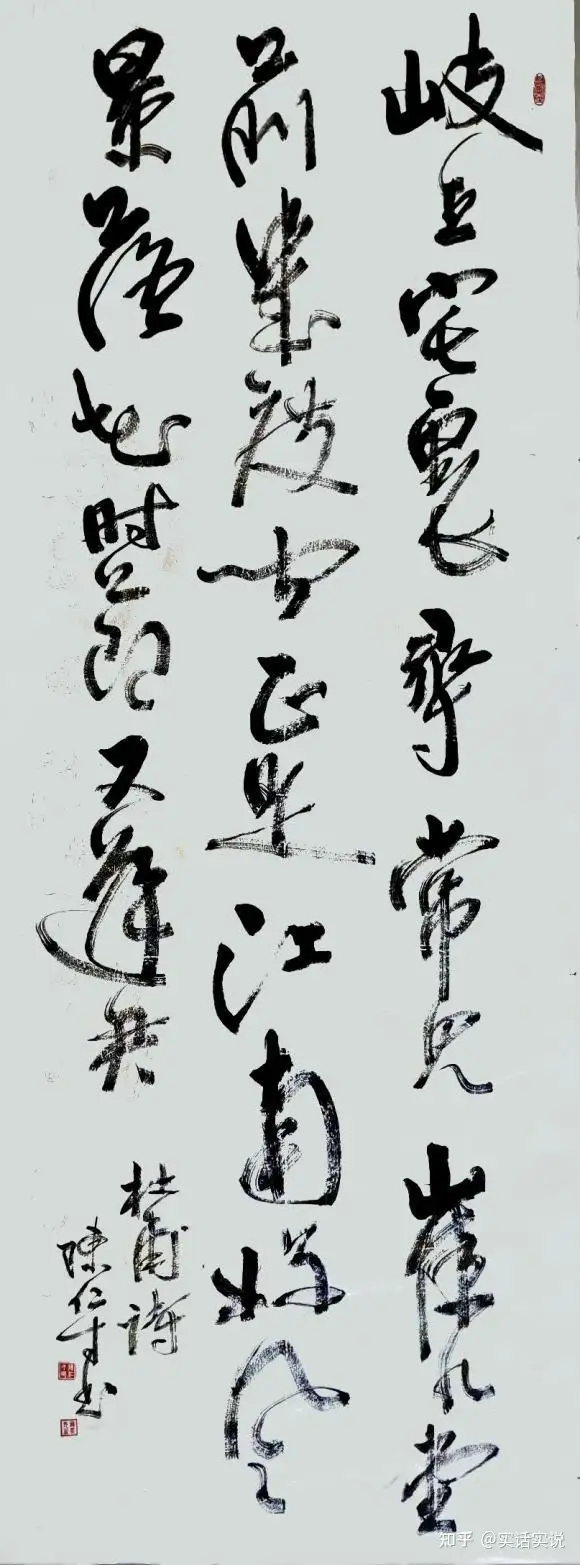 岐王宅裏尋常見崔九堂
前幾度聞正是江南好風
景落花时節又逢君
杜甫詩
陳仁才书
知乎 @实话实说